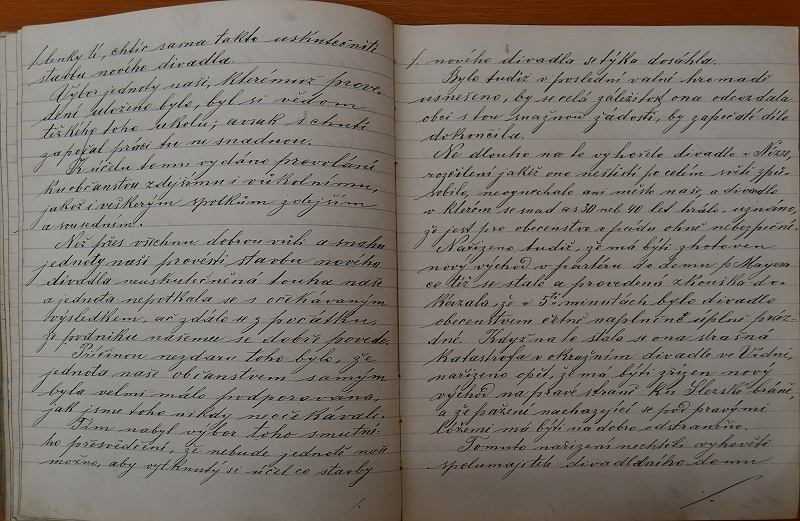 šlenky té, chtíc sama takto uskutečniti
stavbu nového divadla.
Výbor jednoty naší, kterémuž prove-
dení uloženo bylo, byl si vědom
těžkého toho úkolu; avšak s chutí
započal práci tu ne snadnou.
K účelu tomu vydáno provolání
ku občanstvu zdejšímu i vůkolnímu,
jakož i veškerým spolkům zdejším
a sousedním.
Než přes všechnu dobrou vůli a snahu
jednoty naší provésti stavbu nového
divadla neuskutečněná touha naše
a jednota nepotkala se s očekávaným
výsledkem, ač zdálo se z počátku,
že podniku našemu se dobře povede.
Příčinou nezdaru toho bylo, že
jednota naše občanstvem samým
byla velmi málo podporována,
jak jsme toho nikdy neočekávali.
Tím nabyl výbor toho smutné-
ho přesvědčení, že nebude jednotě naší
možno, aby vytknutý si účel co stavby
nového divadla se týká dosáhla.
Bylo tudíž v poslední valné hromadě
usneseno, by se celá záležitost ona odevzdala
obci s tou snažnou žádostí, by započaté dílo
dokončila.
Ne dlouho na to vyhořelo divadlo v Nizze,
rozčilení jakéž ono neštěstí po celém světě způ-
sobilo, neopnechalo ani město naše, a divadlo
v kterém se snad as 30 neb 40 let hrálo, uznáno,
že jest pro obecenstvo v pádu ohně nebezpečné.
Nařízeno tudíž, že má býti zhotoven
nový východ v parterru do domu p. Mayera
co též se stalo a provedená zkouška do-
kázala, že v 5ti minutách bylo divadlo
obecenstvem četně naplněné úplně práz-
dné. Když na to stala se ona strašná
katastrofa v okružním divadle ve Vídni,
nařízeno opět, že má býti zřízen nový
východ na pravé straně ku Slezské bráně,
a že pažení nacházející se pod pravými
ložemi má býti na dobro odstraněno.
Tomuto nařízení nechtěli vyhověti
spolumajitelé divadelního domu